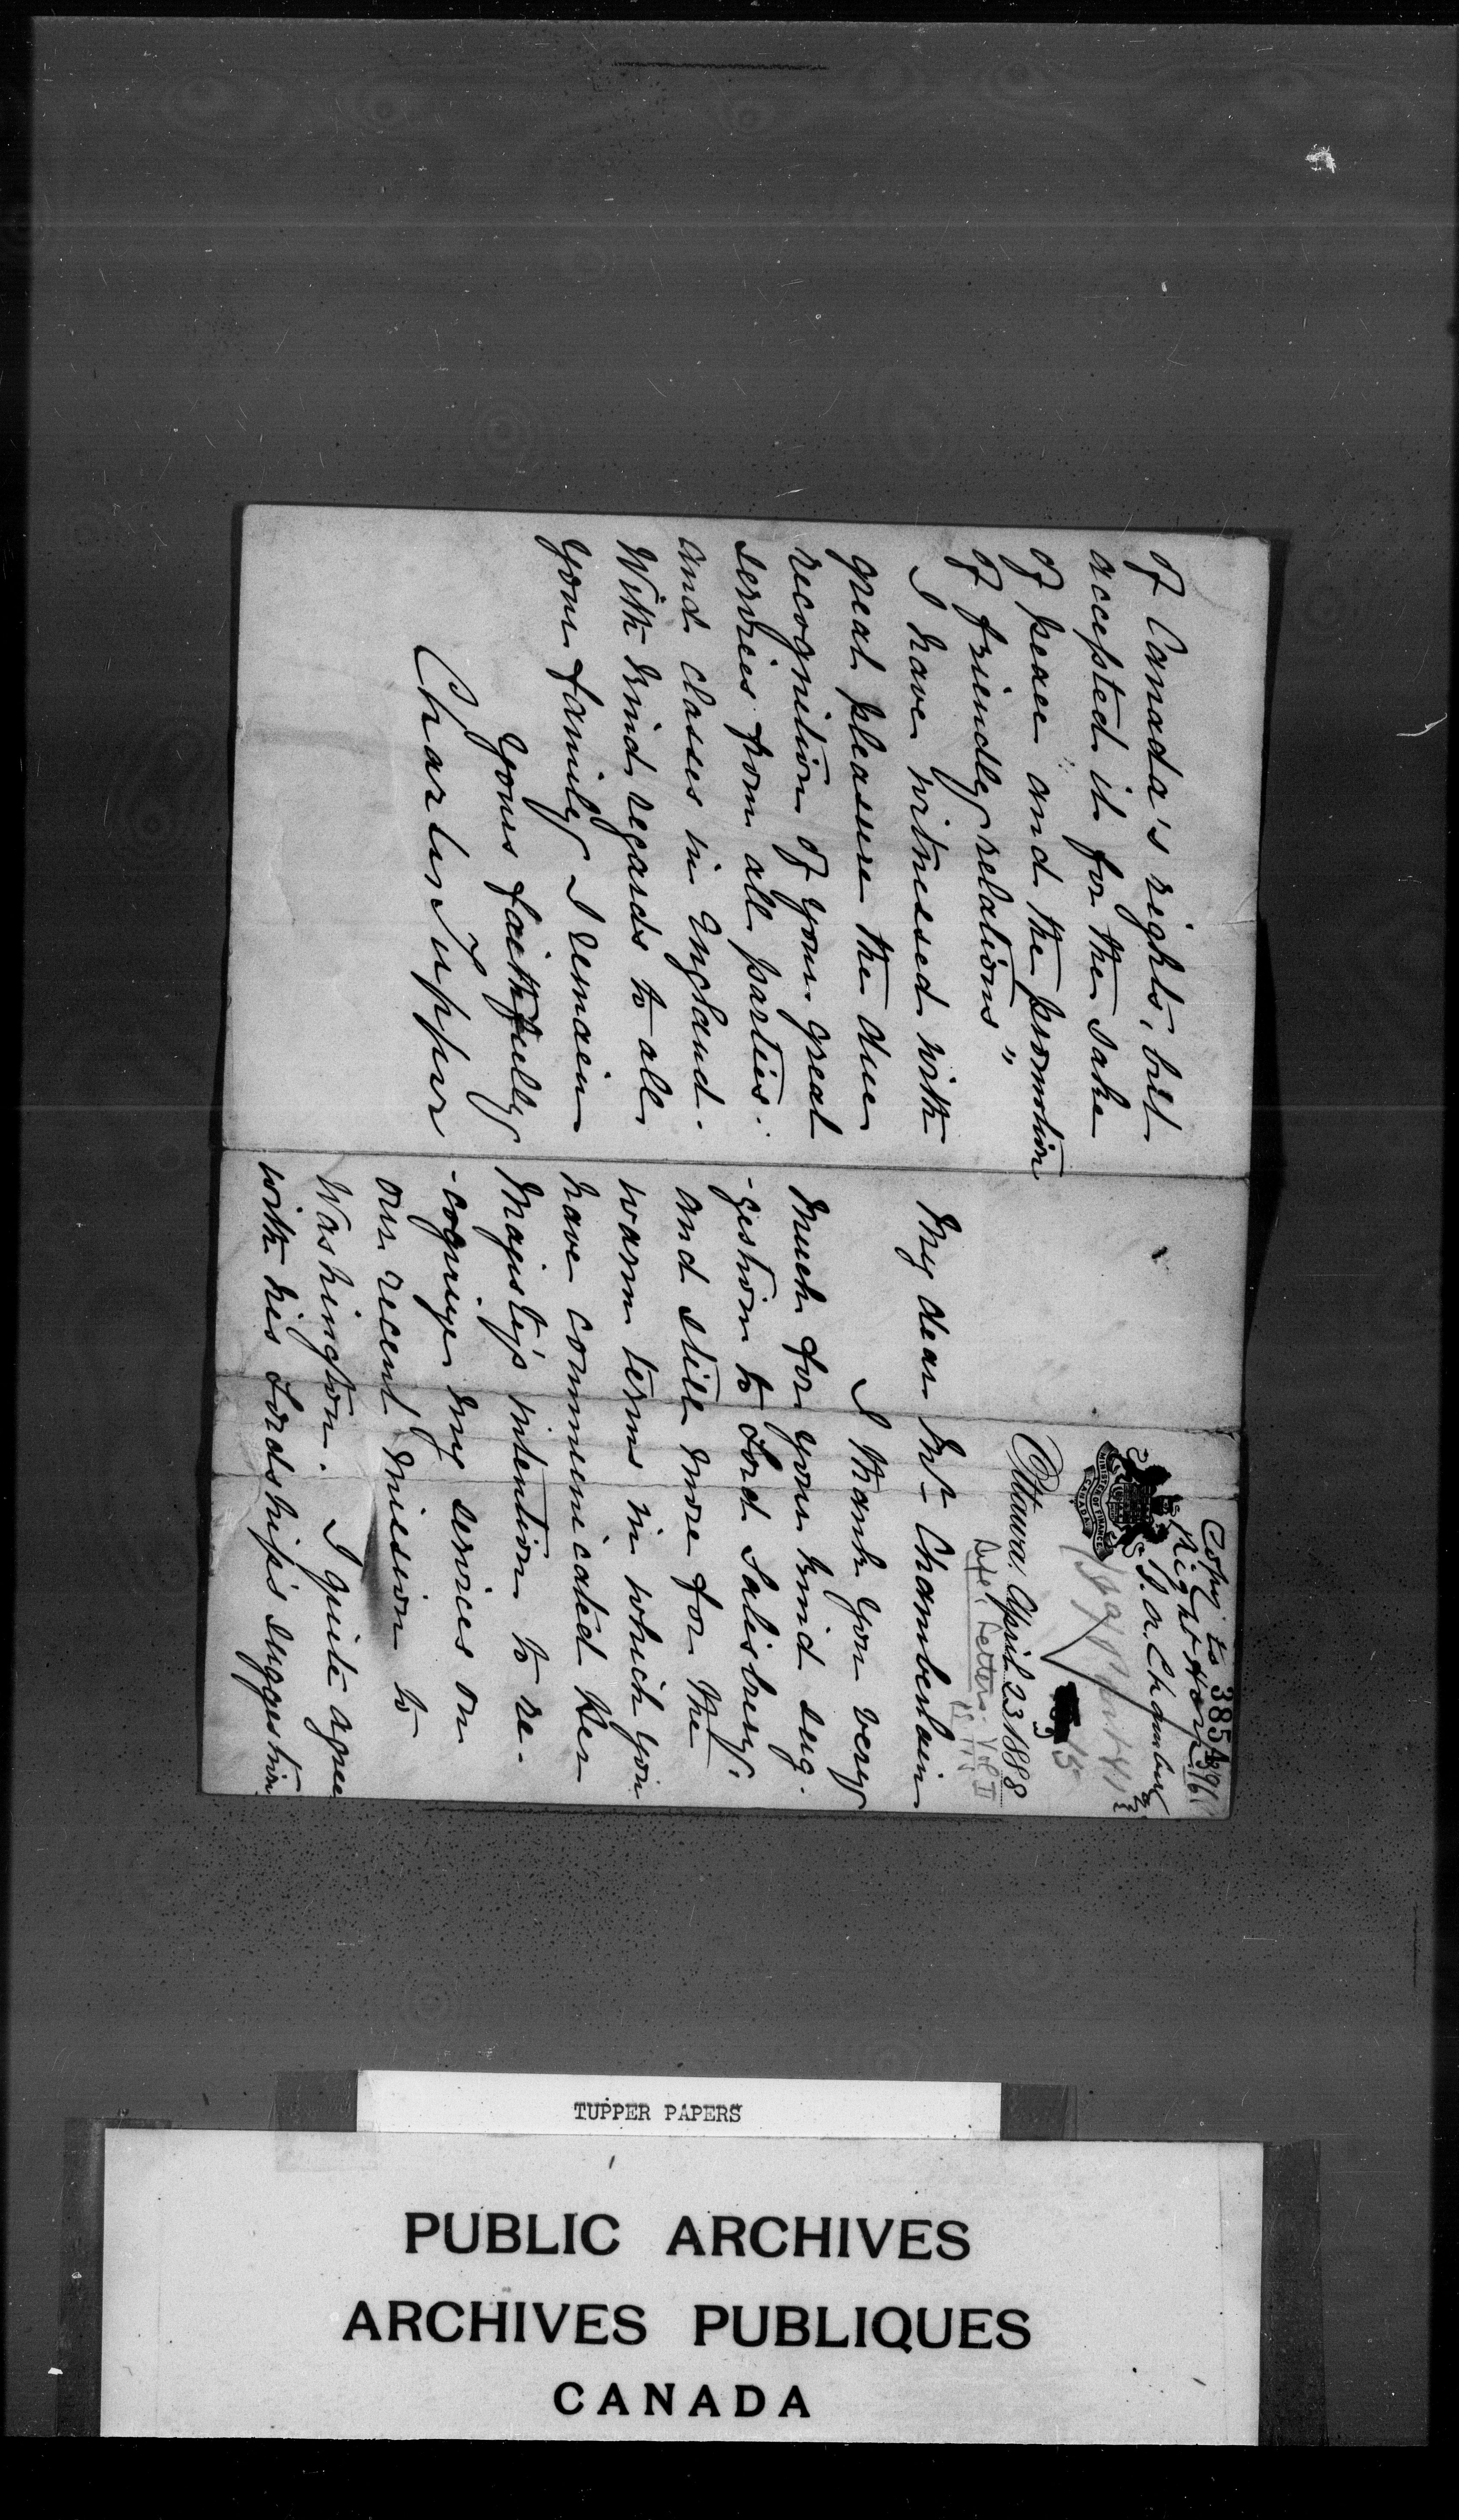 Copy to 3854
Right Hon
J. A. Chamberlain
MINISTER OF FINANCE
CANADA
15
Ottawa, April 23 1888
Life & Letters. Vol II
My dear Mr Chamberlain
I thank you very
much for your kind sug-
-gestion to Lord Salisbury.
and still more for the
warm terms in which you
have communicated Her
Majesty's intention to re-
-cognize my services on
our recent mission to
Washington. I quite agree
with his Lordship's suggestion
of Canada's rights, but
accepted it for the sake
of peace and the promotion
of friendly relations"
I have witnessed with
great pleasure the due
recognition of your great
services from all parties
and classes in England.
With kind regards to all
your family I remain
Yours faithfully
Charles Tupper
TUPPER PAPERS
PUBLIC ARCHIVES
ARCHIVES PUBLIQUES
CANADA